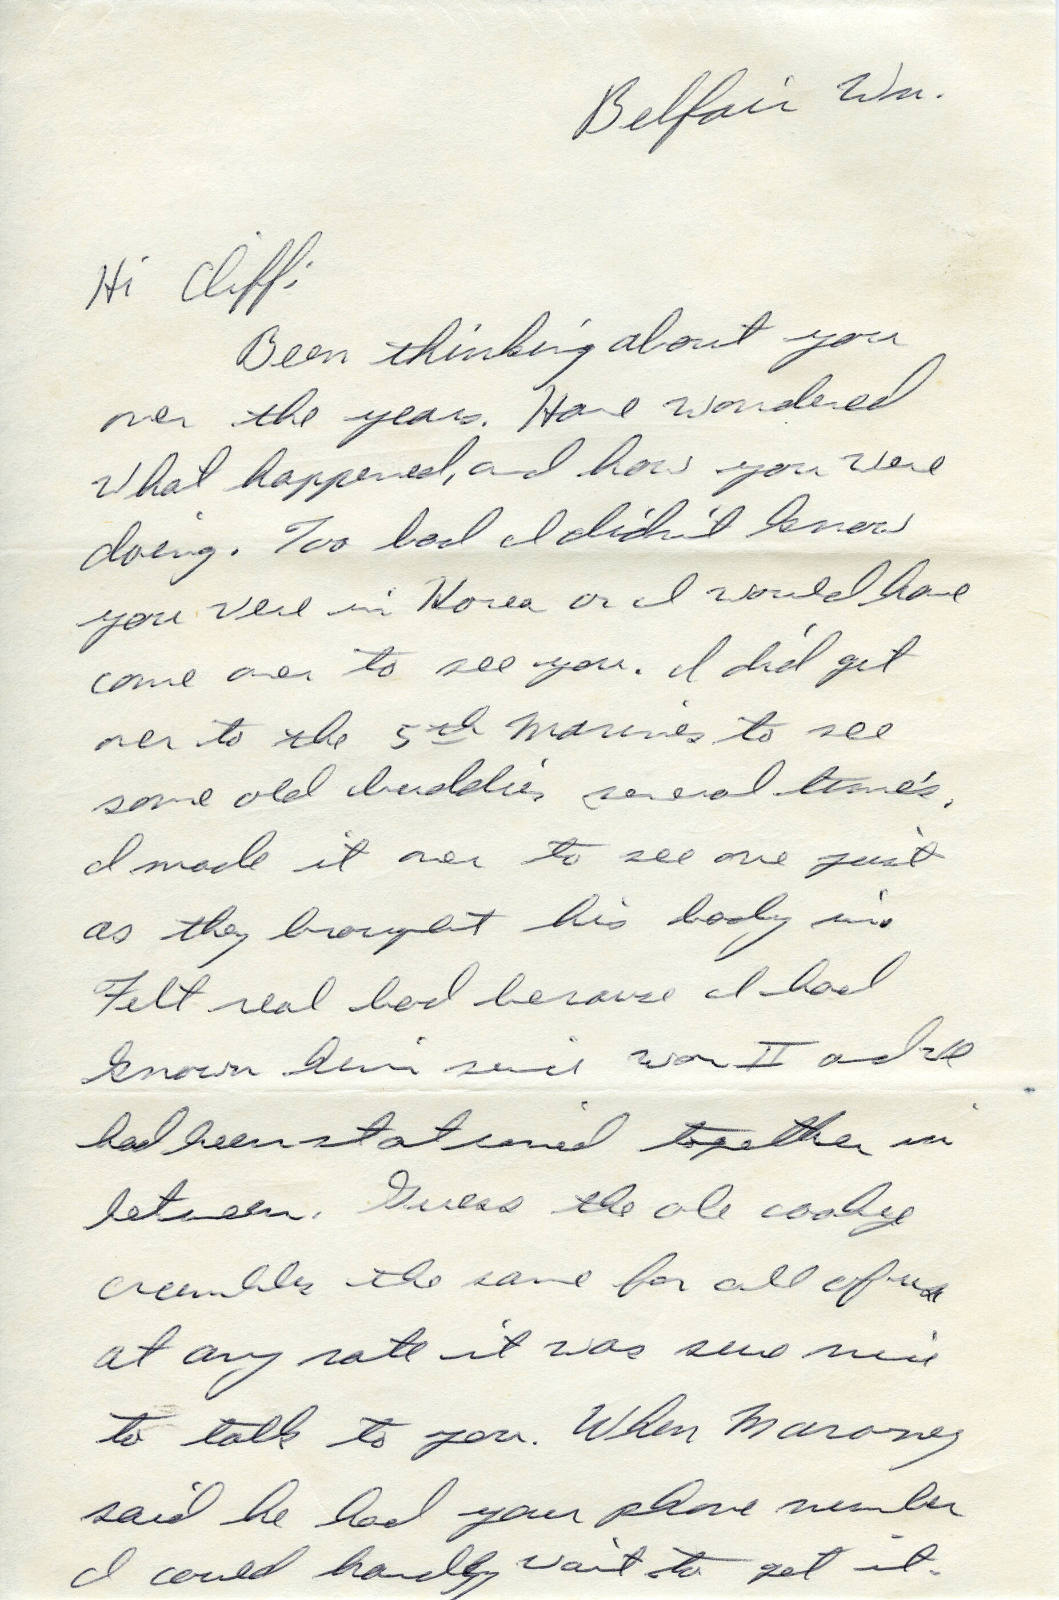 Belfair Wn.
Hi Cliff;
Been thinking about you
over the years. Have wondered
what happened, and how you were
doing. Too bad I didn't know
you were in Korea or I would have
come over to see you. I did get
over to the 5th Marines to see
some old buddies several times.
I made it over to see one just
as they brought his body in.
Felt real bad because I had
known him since war II and we
had been stationed together in
between. Guess the ole cooky
crumbles the same for all of us
at any rate it was sure nice
to talk to you. When Maroney
said he had your phone number
I could hardly wait to get it.